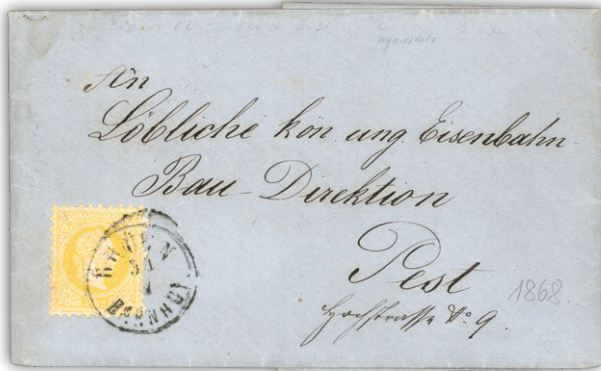 An
Löbliche kön. ung. Eisenbahn-
Bau-Direktion
Pest
Hochstrasse No. 9.
1868
BRÜNN
BAHNHOF